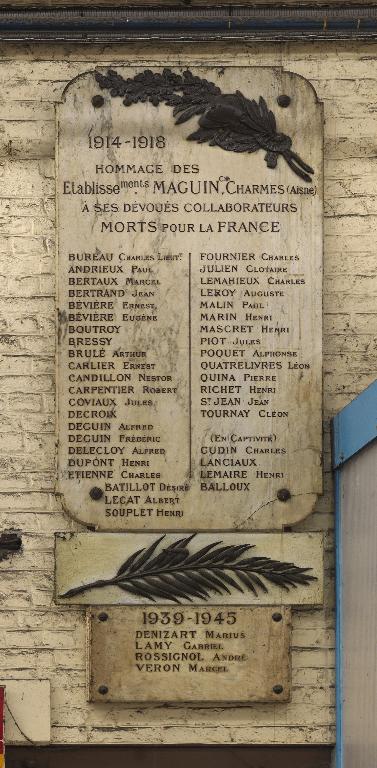 1914-1918
HOMMAGE DES
Etablissements MAGUIN, Cie CHARMES (Aisne)
A SES DÉVOUÉS COLLABORATEURS
MORTS POUR LA FRANCE
BUREAU CHARLES LIEUT.
ANDRIEUX PAUL
BERTAUX MARCEL
BERTRAND JEAN
BÉVIÈRE ERNEST
BÉVIÈRE EUGÈNE
BOUTROY
BRESSY
BRULÉ ARTHUR
CARLIER ERNEST
CANDILLON NESTOR
CARPENTIER ROBERT
COVIAUX JULES
DECROIX
DEGUIN ALFRED
DEGUIN FRÉDÉRIC
DELECLOY ALFRED
DUPONT HENRI
ETIENNE CHARLES
BATILLOT DÉSIRÉ
LEGAT ALBERT
SOUPLET HENRI
FOURNIER CHARLES
JULIEN CLOTAIRE
LEMAHIEUX CHARLES
LEROY AUGUSTE
MALIN PAUL
MARIN HENRI
MASCRET HENRI
PIOT JULES
POQUET ALPHONSE
QUATRELIVRES LÉON
QUINA PIERRE
RICHET HENRI
ST JEAN JEAN
TOURNAY CLÉON
(EN CAPTIVITÉ)
GUDIN CHARLES
LANCIAUX
LEMAIRE HENRI
BALLOUX
1939-1945
DENIZART MARIUS
LAMY GABRIEL
ROSSIGNOL ANDRÉ
VERON MARCEL